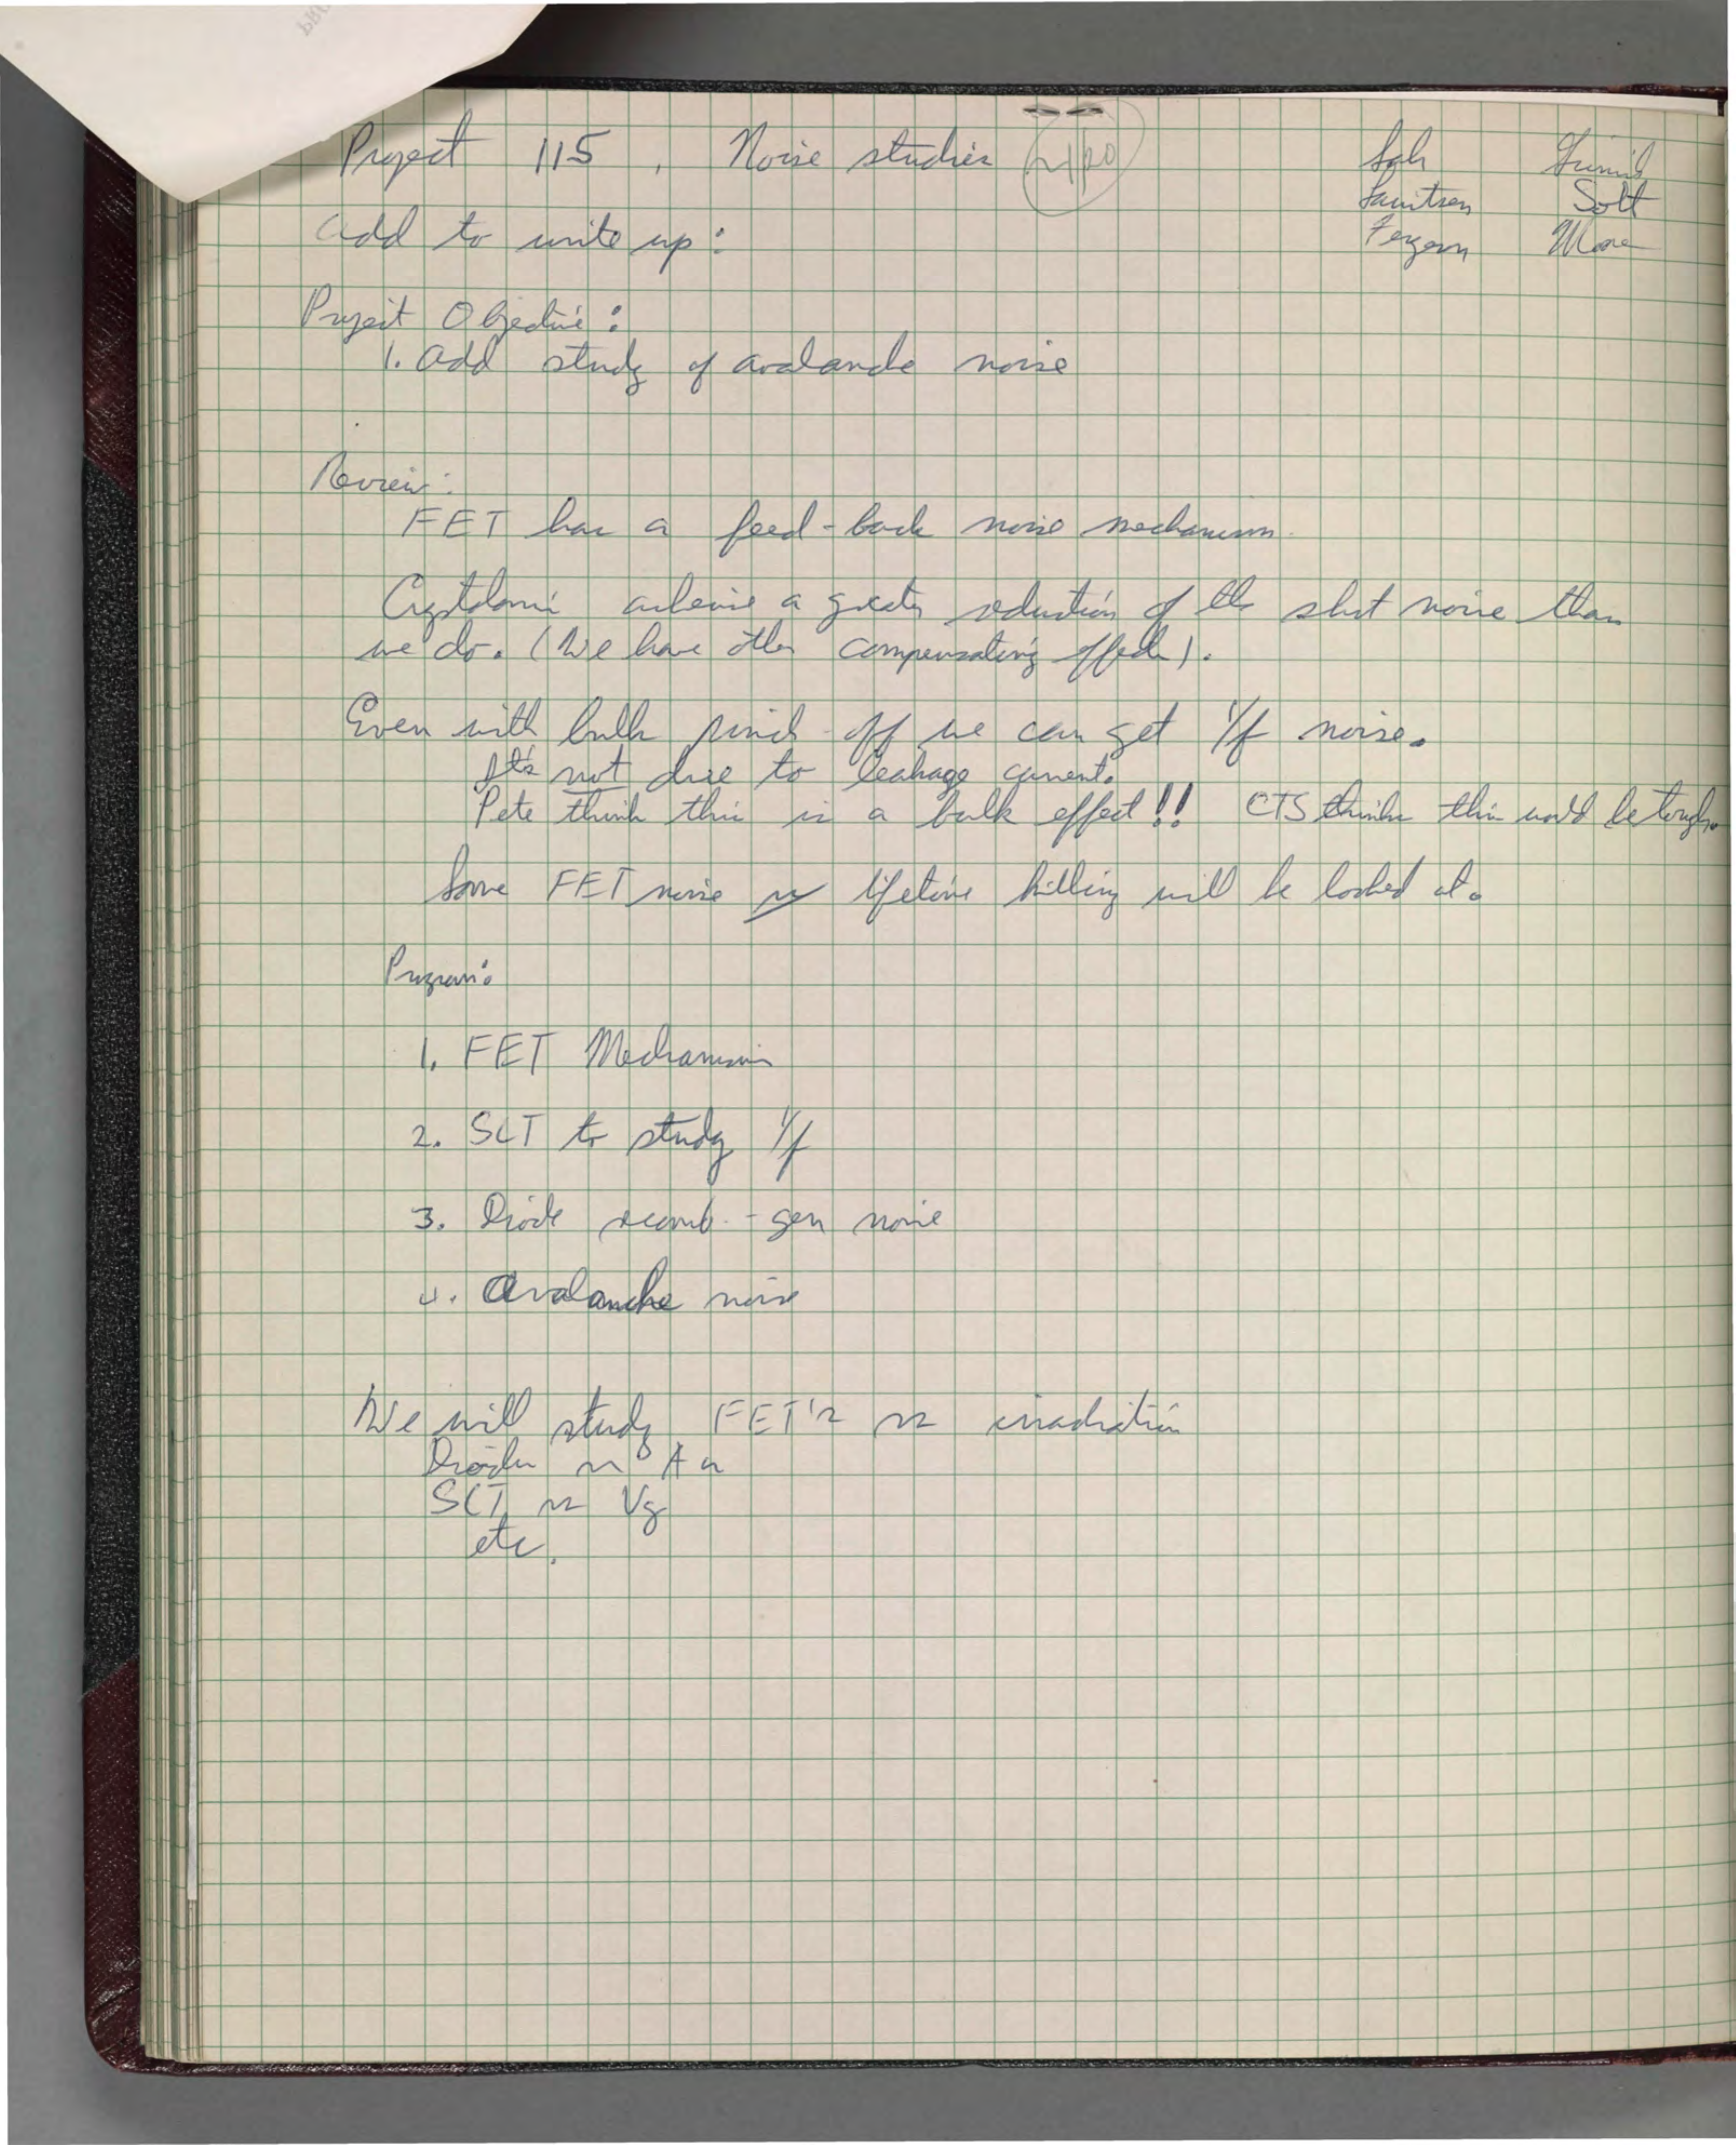 Project 115, Noise studies
Sah Grinich
Lauritzen Solt
Moore
Add to write up:
Project Objective:
1. Add study of avalanche noise
Review:
FET has a feed-back noise mechanism.
Crystalonics achieve a greater reduction of the shot noise than
we do. (We have other compensating effects).
Even with bulk pinch-off we can get 1/f noise.
It's not due to leakage current.
Pete thinks this is a bulk effect!! CTS thinks this would be tough.
Some FET noise vs lifetime killing will be looked at.
Program:
1. FET Mechanism
2. SCT to study 1/f
3. Diode recomb.-gen noise
4. Avalanche noise
We will study FET's vs irradiation
Diodes vs Au
SCT vs Vg
etc.